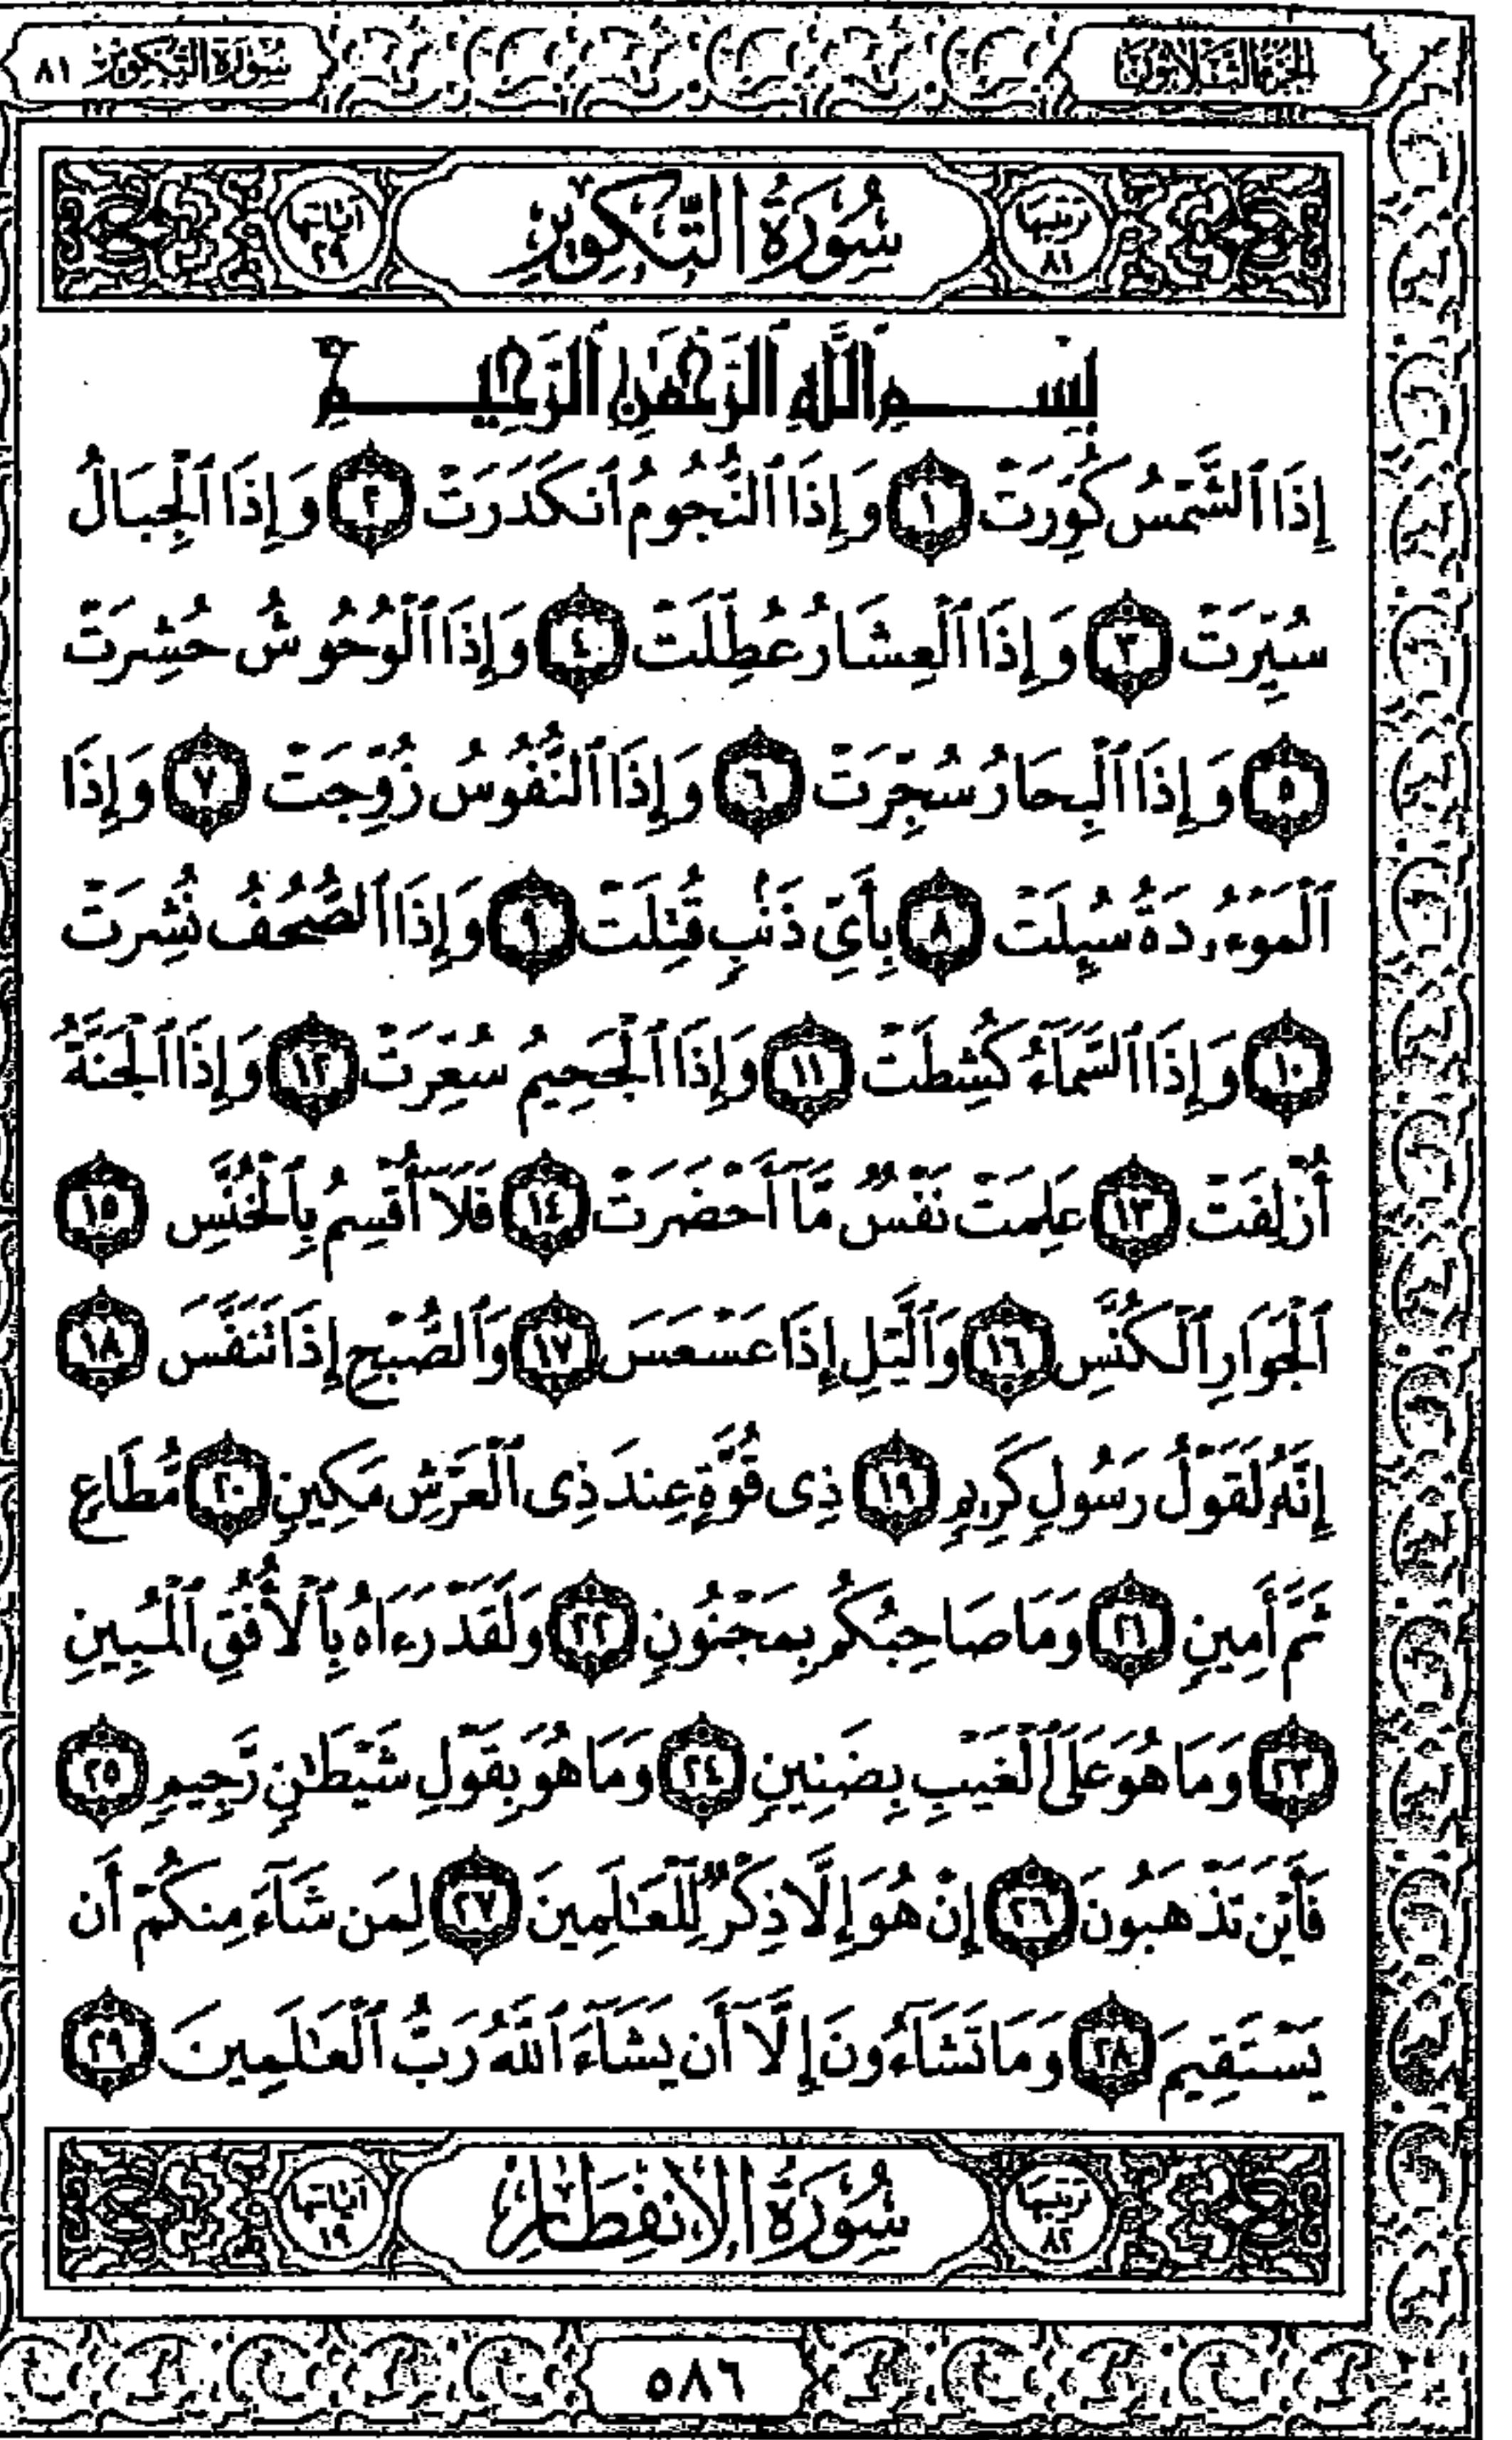 الجزء الثلاثون
سورة التكوير ٨١
ترتيبها ٨١
سُورَةُ التَّكْوِيرِ
آياتها ٢٩
بِسْمِ ٱللَّهِ ٱلرَّحْمَٰنِ ٱلرَّحِيمِ
إِذَا ٱلشَّمْسُ كُوِّرَتْ ١ وَإِذَا ٱلنُّجُومُ ٱنكَدَرَتْ ٢ وَإِذَا ٱلْجِبَالُ
سُيِّرَتْ ٣ وَإِذَا ٱلْعِشَارُ عُطِّلَتْ ٤ وَإِذَا ٱلْوُحُوشُ حُشِرَتْ
٥ وَإِذَا ٱلْبِحَارُ سُجِّرَتْ ٦ وَإِذَا ٱلنُّفُوسُ زُوِّجَتْ ٧ وَإِذَا
ٱلْمَوْءُۥدَةُ سُئِلَتْ ٨ بِأَىِّ ذَنۢبٍ قُتِلَتْ ٩ وَإِذَا ٱلصُّحُفُ نُشِرَتْ
١٠ وَإِذَا ٱلسَّمَآءُ كُشِطَتْ ١١ وَإِذَا ٱلْجَحِيمُ سُعِّرَتْ ١٢ وَإِذَا ٱلْجَنَّةُ
أُزْلِفَتْ ١٣ عَلِمَتْ نَفْسٌ مَّآ أَحْضَرَتْ ١٤ فَلَآ أُقْسِمُ بِٱلْخُنَّسِ ١٥
ٱلْجَوَارِ ٱلْكُنَّسِ ١٦ وَٱلَّيْلِ إِذَا عَسْعَسَ ١٧ وَٱلصُّبْحِ إِذَا تَنَفَّسَ ١٨
إِنَّهُۥ لَقَوْلُ رَسُولٍ كَرِيمٍ ١٩ ذِى قُوَّةٍ عِندَ ذِى ٱلْعَرْشِ مَكِينٍ ٢٠ مُّطَاعٍ
ثَمَّ أَمِينٍ ٢١ وَمَا صَاحِبُكُم بِمَجْنُونٍ ٢٢ وَلَقَدْ رَءَاهُ بِٱلْأُفُقِ ٱلْمُبِينِ
٢٣ وَمَا هُوَ عَلَى ٱلْغَيْبِ بِضَنِينٍ ٢٤ وَمَا هُوَ بِقَوْلِ شَيْطَٰنٍ رَّجِيمٍ ٢٥
فَأَيْنَ تَذْهَبُونَ ٢٦ إِنْ هُوَ إِلَّا ذِكْرٌ لِّلْعَٰلَمِينَ ٢٧ لِمَن شَآءَ مِنكُمْ أَن
يَسْتَقِيمَ ٢٨ وَمَا تَشَآءُونَ إِلَّآ أَن يَشَآءَ ٱللَّهُ رَبُّ ٱلْعَٰلَمِينَ ٢٩
ترتيبها ٨٢
سُورَةُ الإنفِطَارِ
آياتها ١٩
٥٨٦